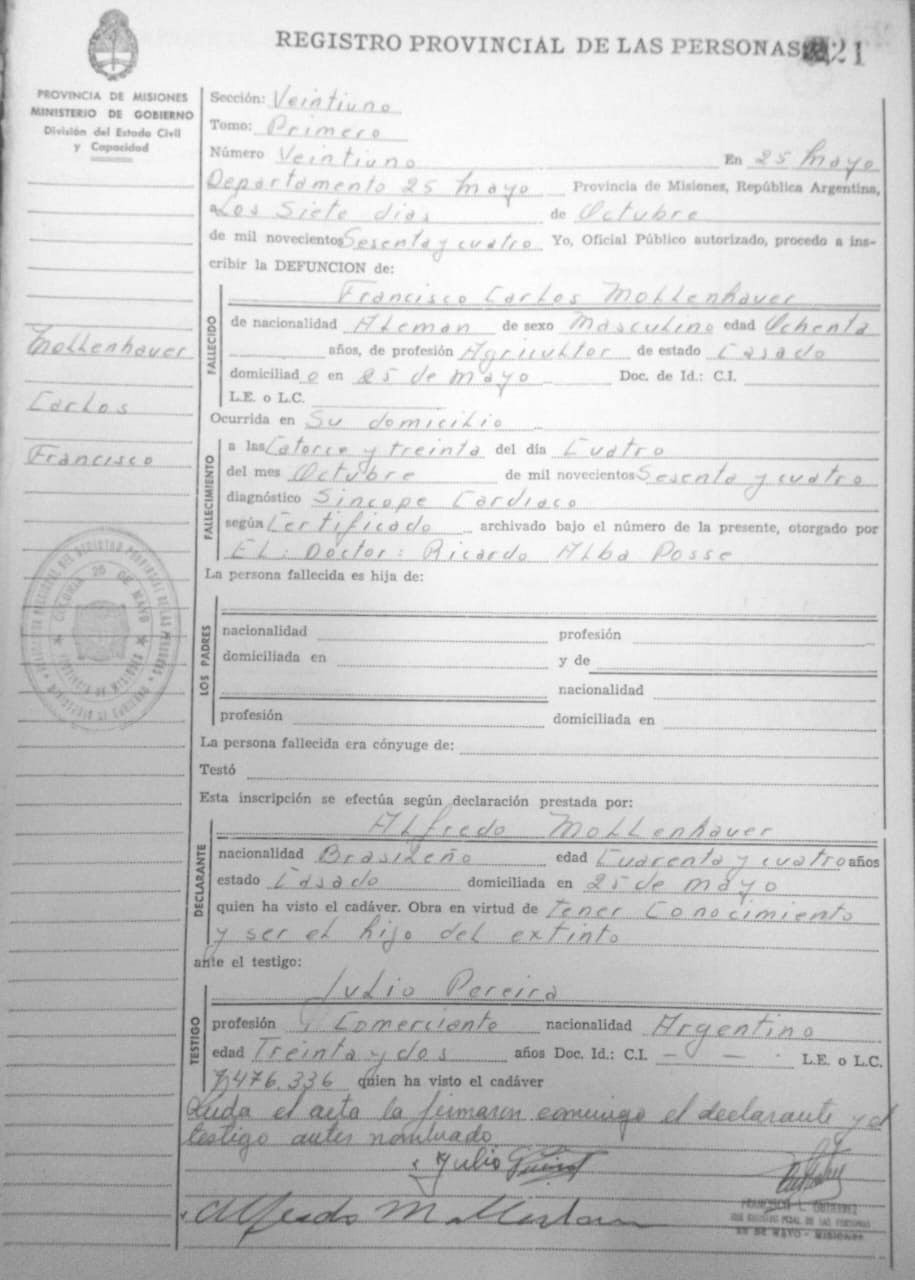 REGISTRO PROVINCIAL DE LAS PERSONAS 21
PROVINCIA DE MISIONES
MINISTERIO DE GOBIERNO
División del Estado Civil
y Capacidad
Mollenhauer
Carlos
Francisco
COLONIA 25 DE MAYO
Sección: Veintiuno
Tomo: Primero
Número Veintiuno En 25 Mayo
Departamento 25 Mayo Provincia de Misiones, República Argentina,
a Los Siete dias de Octubre
de mil novecientos Sesenta y cuatro Yo, Oficial Público autorizado, procedo a ins-
cribir la DEFUNCION de:
FALLECIDO
Francisco Carlos Mollenhauer
de nacionalidad Aleman de sexo Masculino edad Ochenta
años, de profesión Agricultor de estado Casado
domiciliado en 25 de Mayo Doc. de Id.: C.I.
L.E. o L.C.
Ocurrida en Su domicilio
FALLECIMIENTO
a las Catorce y treinta del día Cuatro
del mes Octubre de mil novecientos Sesenta y cuatro
diagnóstico Sincope Cardiaco
según Certificado archivado bajo el número de la presente, otorgado por
EL: Doctor: Ricardo Alba Posse
La persona fallecida es hija de:
LOS PADRES
nacionalidad profesión
domiciliada en y de
nacionalidad
profesión domiciliada en
La persona fallecida era cónyuge de:
Testó
Esta inscripción se efectúa según declaración prestada por:
DECLARANTE
Alfredo Mollenhauer
nacionalidad Brasileño edad Cuarenta y cuatro años
estado Casado domiciliada en 25 de Mayo
quien ha visto el cadáver. Obra en virtud de tener Conocimiento
y ser el hijo del extinto
ante el testigo:
TESTIGO
Julio Pereira
profesión Comerciante nacionalidad Argentino
edad Treinta y dos años Doc. Id.: C.I. — — . L.E. o L.C.
7,476,336 quien ha visto el cadáver
Leida el acta la firmaron conmigo el declarante y el
testigo antes nombrado
Julio
Alfredo
FRANCISCO L. GUTIERREZ
25 DE MAYO - MISIONES